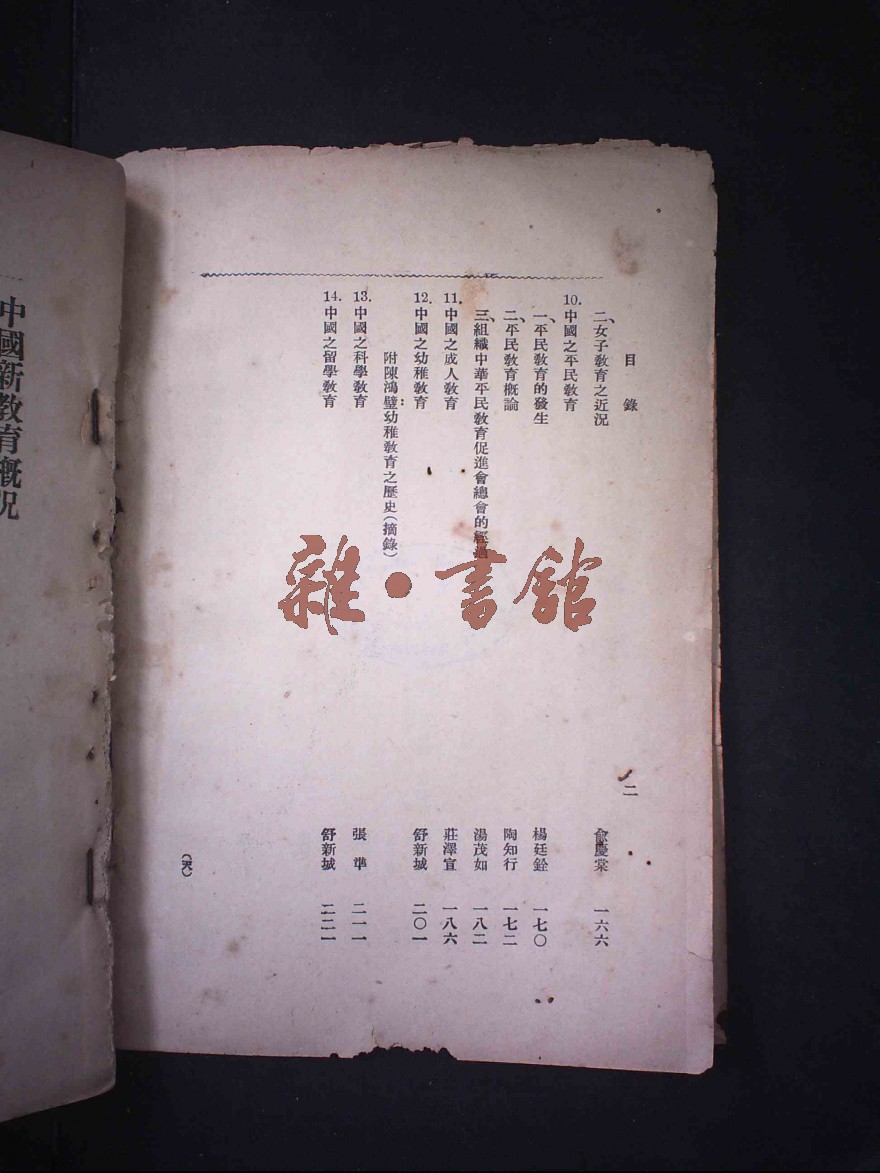 目錄
二
二、女子教育之近況 俞慶棠 一六六
10.中國之平民教育
一、平民教育的發生 楊廷銓 一七〇
二、平民教育概論 陶知行 一七二
三、組織中華平民教育促進會總會的經過 湯茂如 一八二
11.中國之成人教育 莊澤宣 一八六
12.中國之幼稚教育 舒新城 二〇一
附陳鴻璧:幼稚教育之歷史(摘錄)
13.中國之科學教育 張準 二一一
14.中國之留學教育 舒新城 二二一
(天)
中國新教育概況
雜・書館